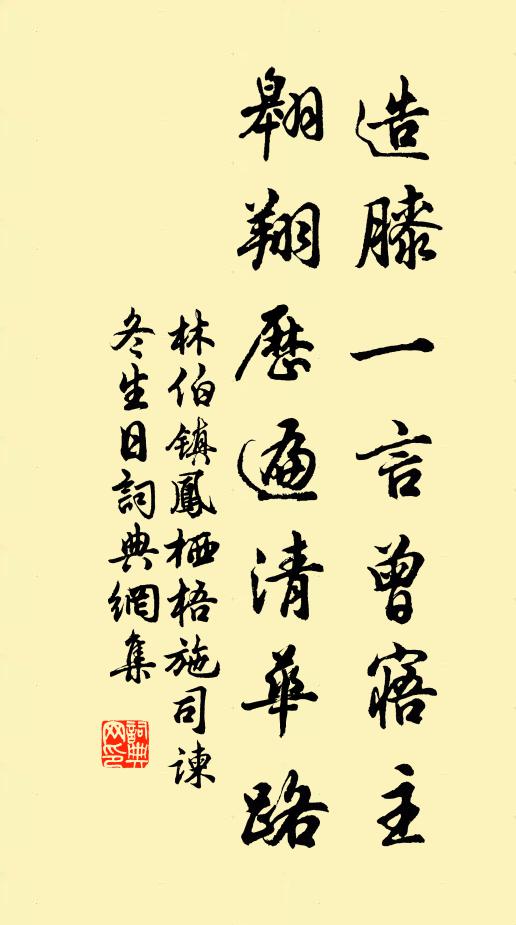 造膝一言曾寤主
翱翔歷遍清華路
林伯镇鳳栖梧施司諫
冬生日詞典網集
詞典网印